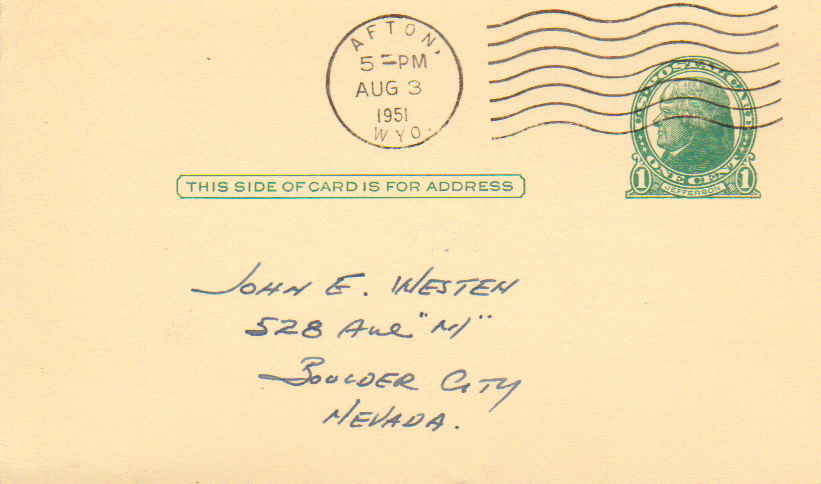 AFTON,
5 -PM
AUG 3
1951
WYO.
U.S. POSTAL CARD
ONE CENT
1 JEFFERSON 1
THIS SIDE OF CARD IS FOR ADDRESS
JOHN E. WESTEN
528 Ave "M"
BOULDER CITY
NEVADA.